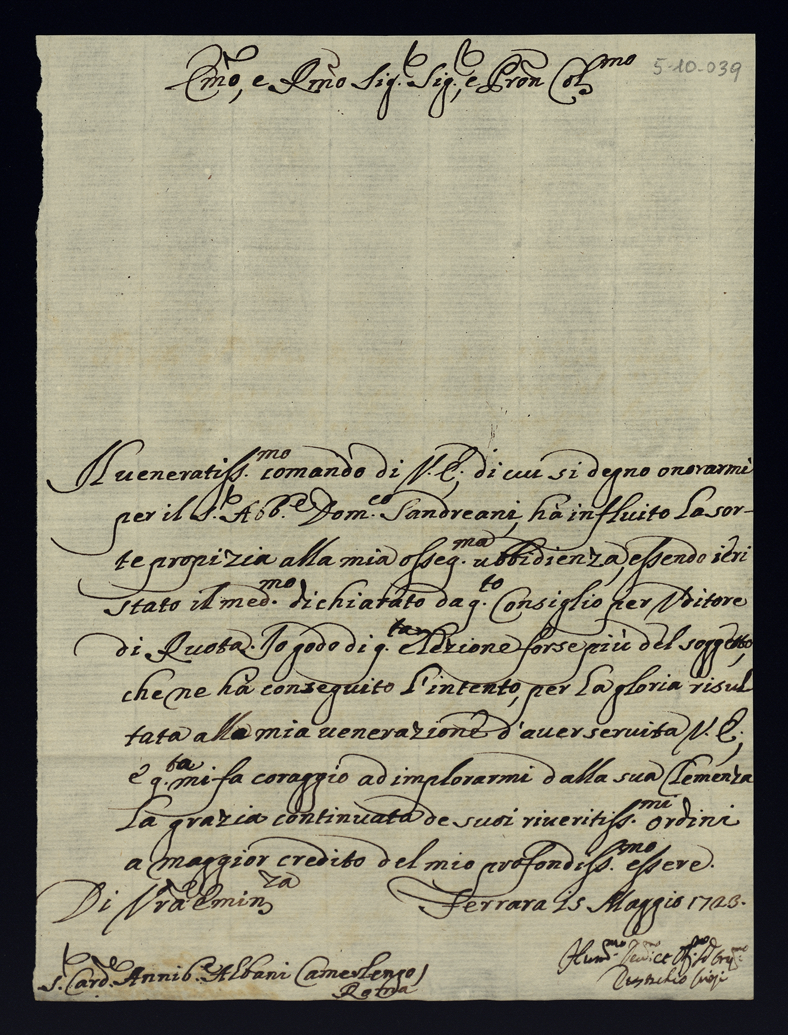 Emo, e Rmo Sig.r Sig.r, e Pron Col.mo
5-10-039
Il ueneratiss.mo comando di V. E., di cui si degnò onorarmi
per il S.r Abb.e Dom.co Sandreani, hà influito la sor-
te propizia alla mia osseq.ma ubbidienza, essendo ieri
stato il med.mo dichiarato da q.to Consiglio per Vditore
di Ruota. Io godo di q.ta elezione forse più del soggetto,
che ne hà conseguito l'intento, per la gloria risul
tata alla mia uenerazione d'auer seruita V. E.,
e q.ta mi fa coraggio ad implorarmi dalla sua Clemenza
la grazia continuata de suoi riueritiss.mi ordini
a maggior credito del mio profondiss.mo essere.
Di Vra Emin.za Ferrara 25 Maggio 1723.
Hum.mo
S.r Card.e Annib.e Albani Camerlengo
Roma